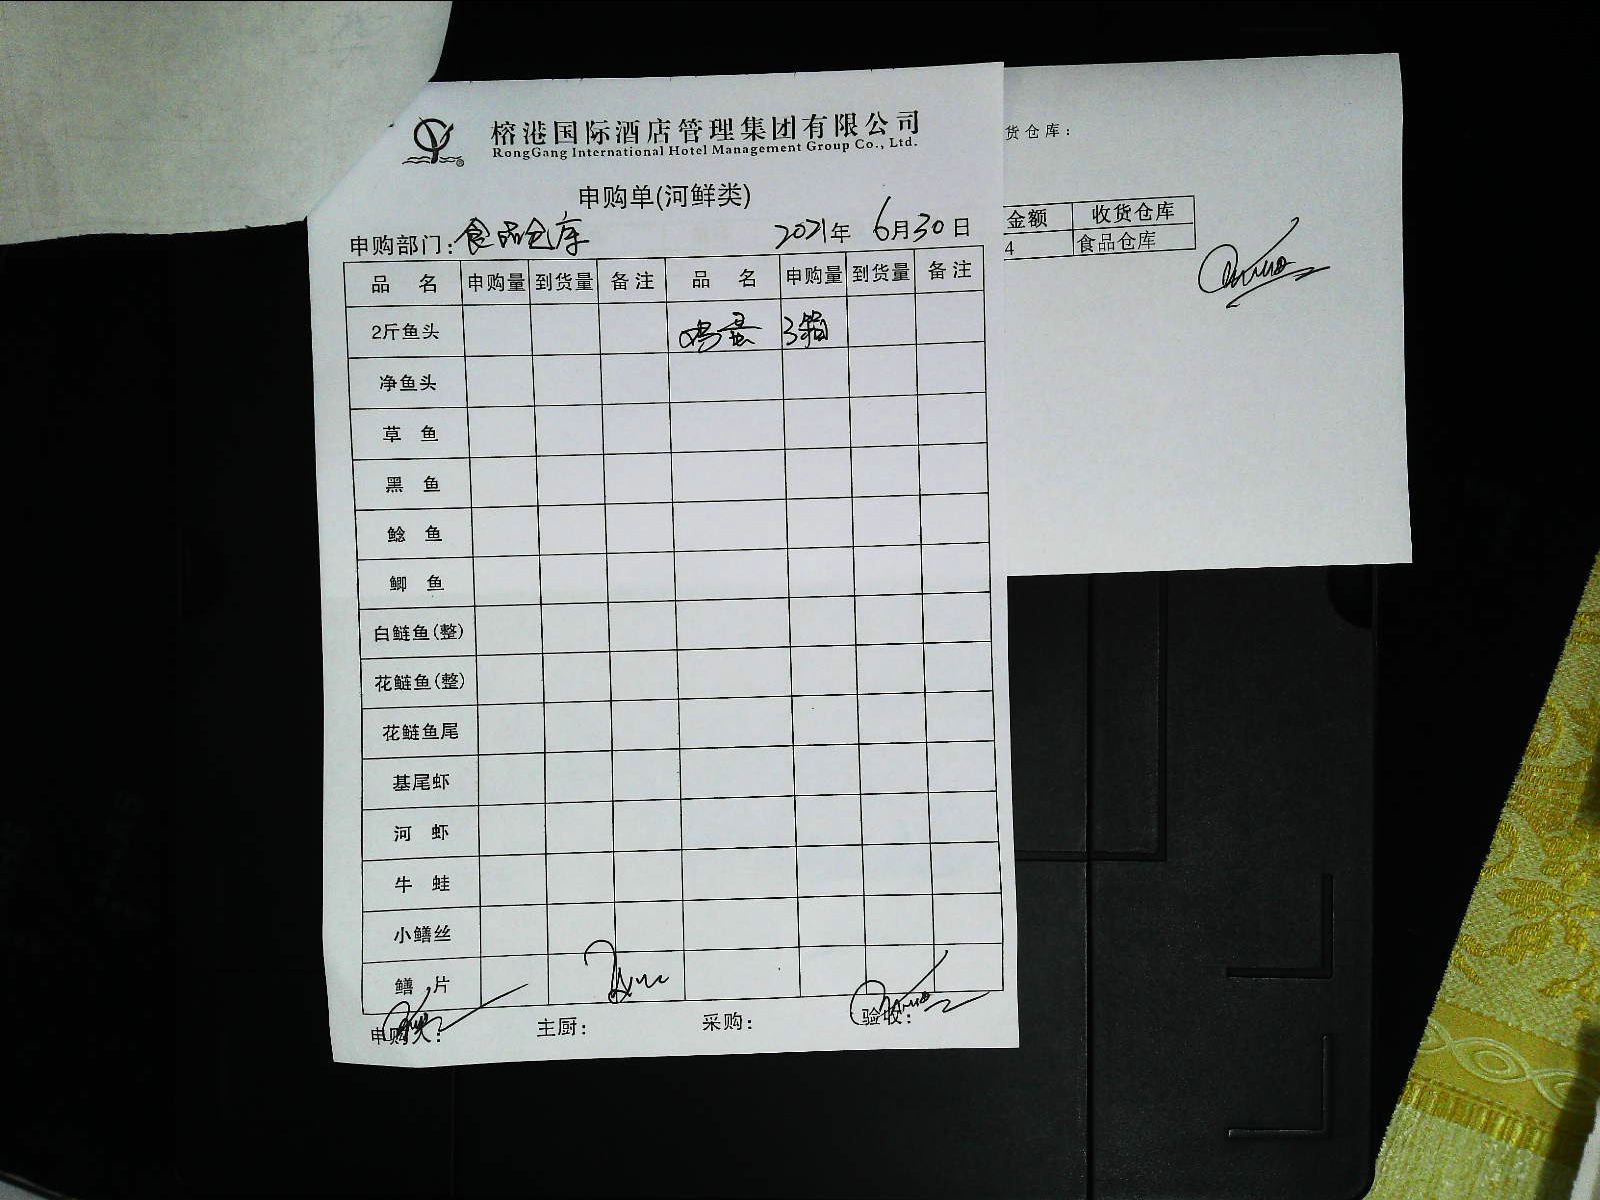 榕港国际酒店管理集团有限公司
RongGang International Hotel Management Group Co., Ltd.
申购单(河鲜类)
申购部门：食品仓库 2021年 6月30日
品 名 申购量 到货量 备注 品 名 申购量 到货量 备注
2斤鱼头 鸡蛋 3箱
净鱼头
草 鱼
黑 鱼
鲶 鱼
鲫 鱼
白鲢鱼(整)
花鲢鱼(整)
花鲢鱼尾
基尾虾
河 虾
牛 蛙
小鳝丝
鳝 片
申购人： 主厨： 采购： 验收：
货仓库：
金额 收货仓库
4 食品仓库